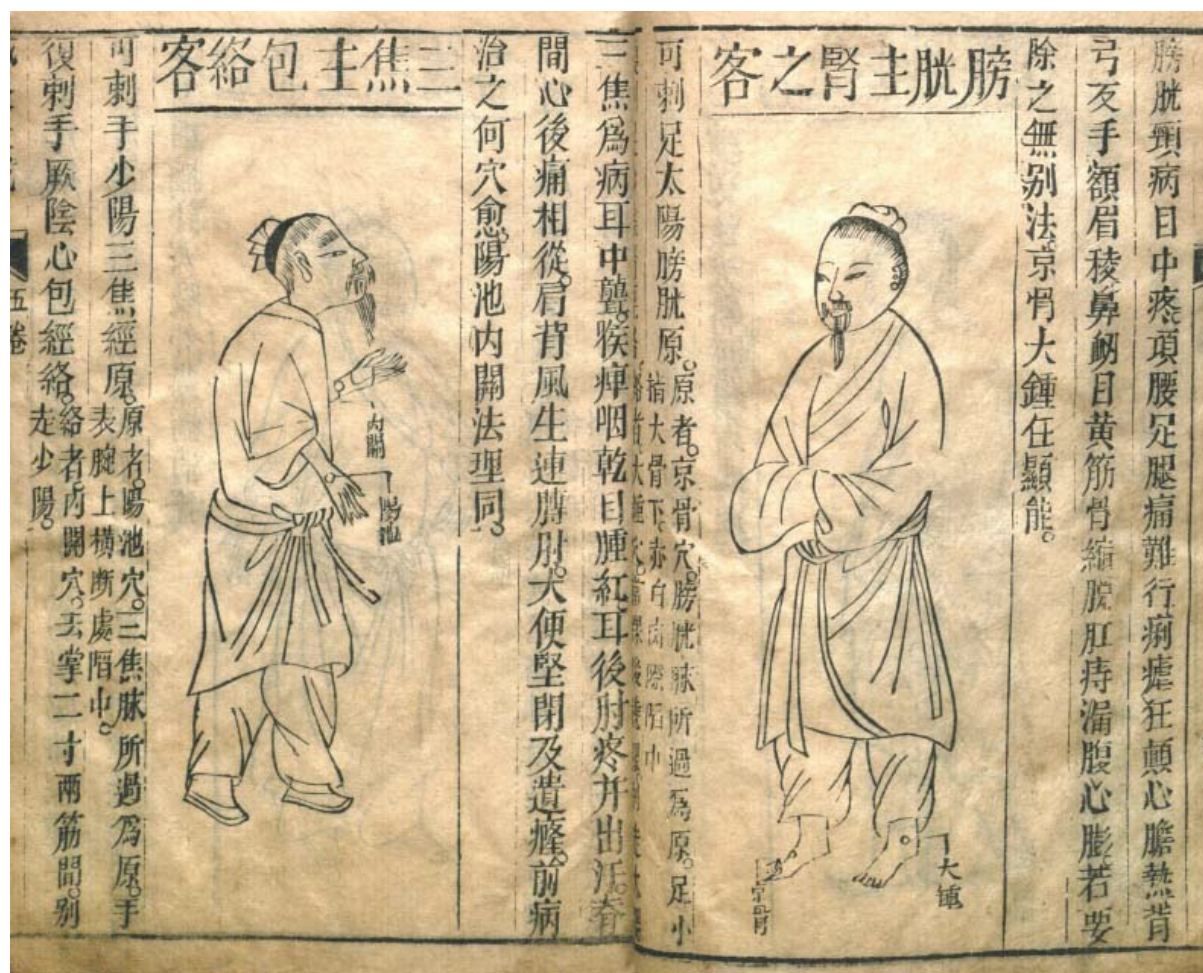 膀胱頸病目中疼項腰足腿痛難行痢瘧狂顛心膽熱背
弓反手額眉稜鼻衂目黃筋骨縮脫肛痔漏腹心膨若要
除之無別法京骨大鍾任顯能。
膀胱主腎之客
大鍾
京骨
可刺足太陽膀胱原。原者。京骨穴。膀胱脉所過為原。足小
指大骨下。赤白肉際陷中
三焦為病耳中聾。喉痺咽乾目腫紅耳後肘疼并出汗。脊
間心後痛相從。肩背風生連膊肘。大便堅閉及遺癃。前病
治之何穴愈。陽池內關法理同。
三焦主包絡客
內關
陽池
可刺手少陽三焦經原。原者。陽池穴。三焦脉所過為原。手
表腕上橫斷處陷中。
復刺手厥陰心包經絡。絡者。內關穴。去掌二寸兩筋間。別
走少陽。
五卷